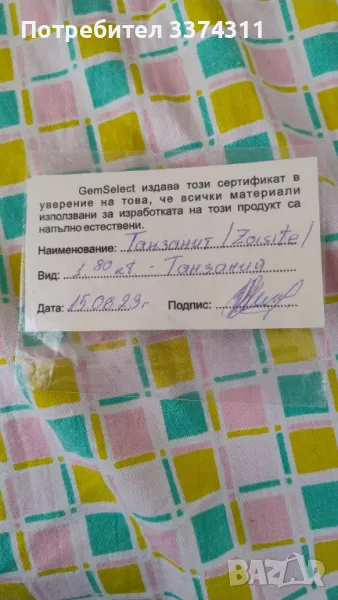 Потребител 3374311
GemSelect издава този сертификат в
уверение на това, че всички материали
използвани за изработката на този продукт са
напълно естествени.
Наименование: Танзанит /Zoisite/
Вид: 1.80 kt - Танзания
Дата: 15.08.23г. Подпис:
BAZAR